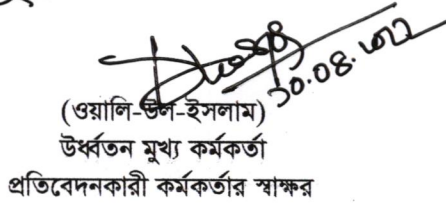 (ওয়ালি-উল-ইসলাম)
উর্ধ্বতন মুখ্য কর্মকর্তা
প্রতিবেদনকারী কর্মকর্তার স্বাক্ষর